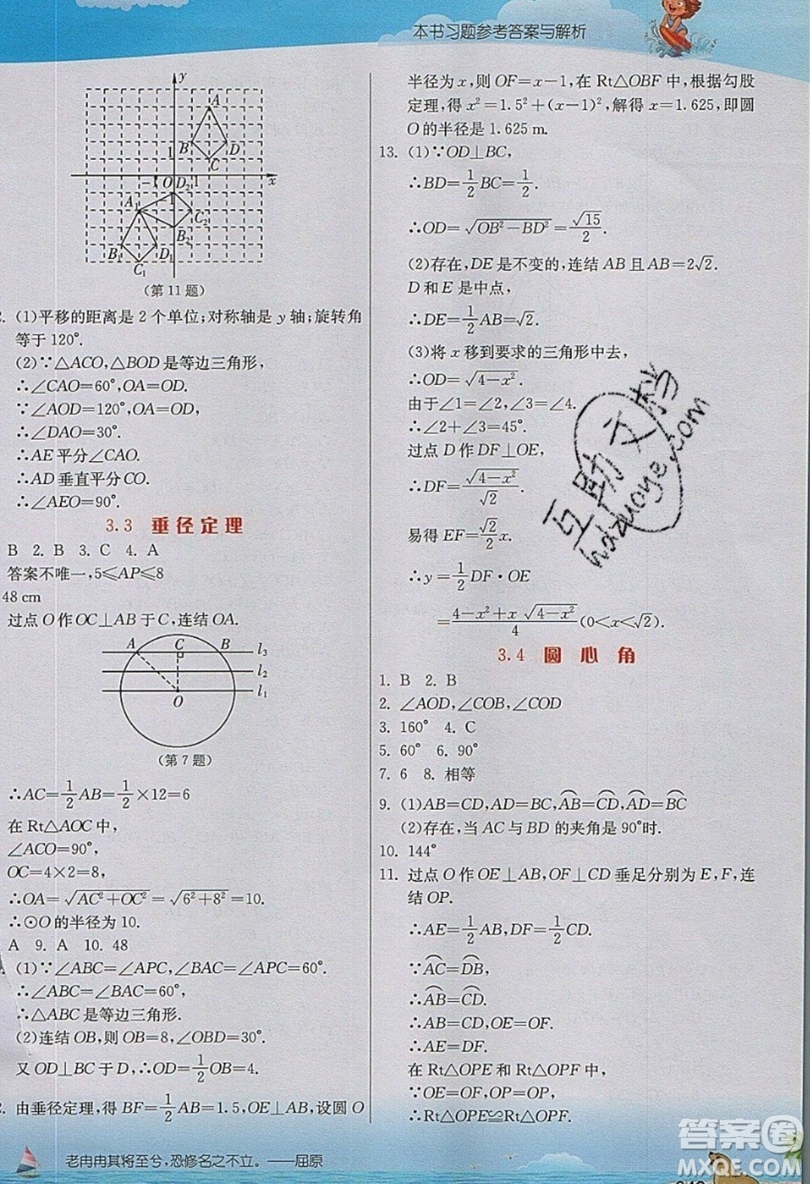 本书习题参考答案与解析
y
A
B
D
C
1
-1 O D₂ 1 x
A₁
C₂
B₂
B₁
D₁
C₁
(第11题)
(1)平移的距离是2个单位;对称轴是y轴;旋转角
等于120°.
(2)∵△ACO,△BOD是等边三角形,
∴∠CAO=60°,OA=OD.
∵∠AOD=120°,OA=OD.
∴∠DAO=30°.
∴AE平分∠CAO.
∴AD垂直平分CO.
∴∠AEO=90°.
3.3 垂径定理
B 2. B 3. C 4. A
答案不唯一,5≤AP≤8
48 cm
过点O作OC⊥AB于C,连结OA.
A C B l₃
l₂
l₁
O
(第7题)
∴AC=1/2AB=1/2×12=6
在Rt△AOC中,
∠ACO=90°
OC=4×2=8
∴OA=√(AC²+OC²)=√(6²+8²)=10.
∴⊙O的半径为10.
A 9. A 10. 48
(1)∵∠ABC=∠APC,∠BAC=∠BPC
∴∠ABC=∠BAC=60°.
∴△ABC是等边三角形.
(2)连结OB,则OB=8,∠OBD=30°.
又OD⊥BC于D,∴OD=1/2OB=4.
由垂径定理,得BF=1/2AB=1.5,OE⊥AB,设圆O
半径为x,则OF=x-1,在Rt△OBF中,根据勾股
定理,得x²=1.5²+(x-1)²,解得x=1.625,即圆
O的半径是1.625 m.
13. (1)∵OD⊥BC,
∴BD=1/2BC=1/2,
∴OD=√(OB²-BD²)=√15/2.
(2)存在,DE是不变的,连结AB且AB=2√2.
D和E是中点,
∴DE=1/2AB=√2.
(3)将x移到要求的三角形中去,
∴OD=√(4-x²).
由于∠1=∠2,∠3=∠4.
∴∠2+∠3=45°.
过点D作DF⊥OE,
∴DF=√(4-x²)/√2.
易得EF=√2/2x.
∴y=1/2DF·OE
=(4-x²+x√(4-x²))/4(0<x<√2).
3.4 圆心角
1. B 2. B
2. ∠AOD,∠COB,∠COD
3. 160° 4. C
5. 60° 6. 90°
7. 6 8. 相等
9. (1)AB=CD,AD=BC,A͡B=C͡D,A͡D=B͡C
(2)存在,当AC与BD的夹角是90°时.
10. 144°
11. 过点O作OE⊥AB,OF⊥CD垂足分别为E,F,连
结OP.
∴AE=1/2AB,DF=1/2CD.
∵A͡C=D͡B,
∴A͡B=C͡D.
∴AB=CD,OE=OF.
∴AE=DF.
在Rt△OPE和Rt△OPF中,
∵OE=OF,OP=OP,
∴Rt△OPE≌Rt△OPF.
互助文档
hdzuoye.com
老冉冉其将至兮,恐修名之不立。——屈原
答案圈
MXQE.COM